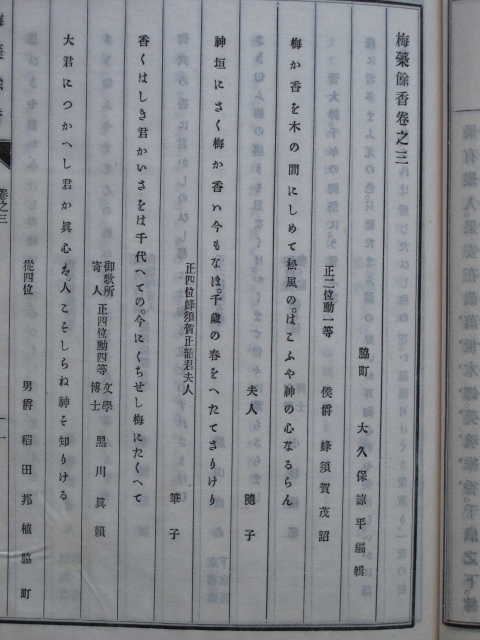 梅蘂餘香卷之三
脇町 大久保諒平編輯
正二位勳一等 侯爵 蜂須賀茂韶
梅か香を木の間にしめて松風の。はこふや神の心なるらん
夫人 隨子
神垣にさく梅か香ハ今もなほ。千歳の春をへたてさりけり
正四位蜂須賀正韶君夫人 筆子
香くはしき君かいさをは千代へての。今にくちせし梅にたくへて
御歌所寄人 正四位勳四等 文學博士 黑川眞賴
大君につかへし君か眞心を。人こそしらね神そ知りける
從四位 男爵 稻田邦植 脇町
卷之三